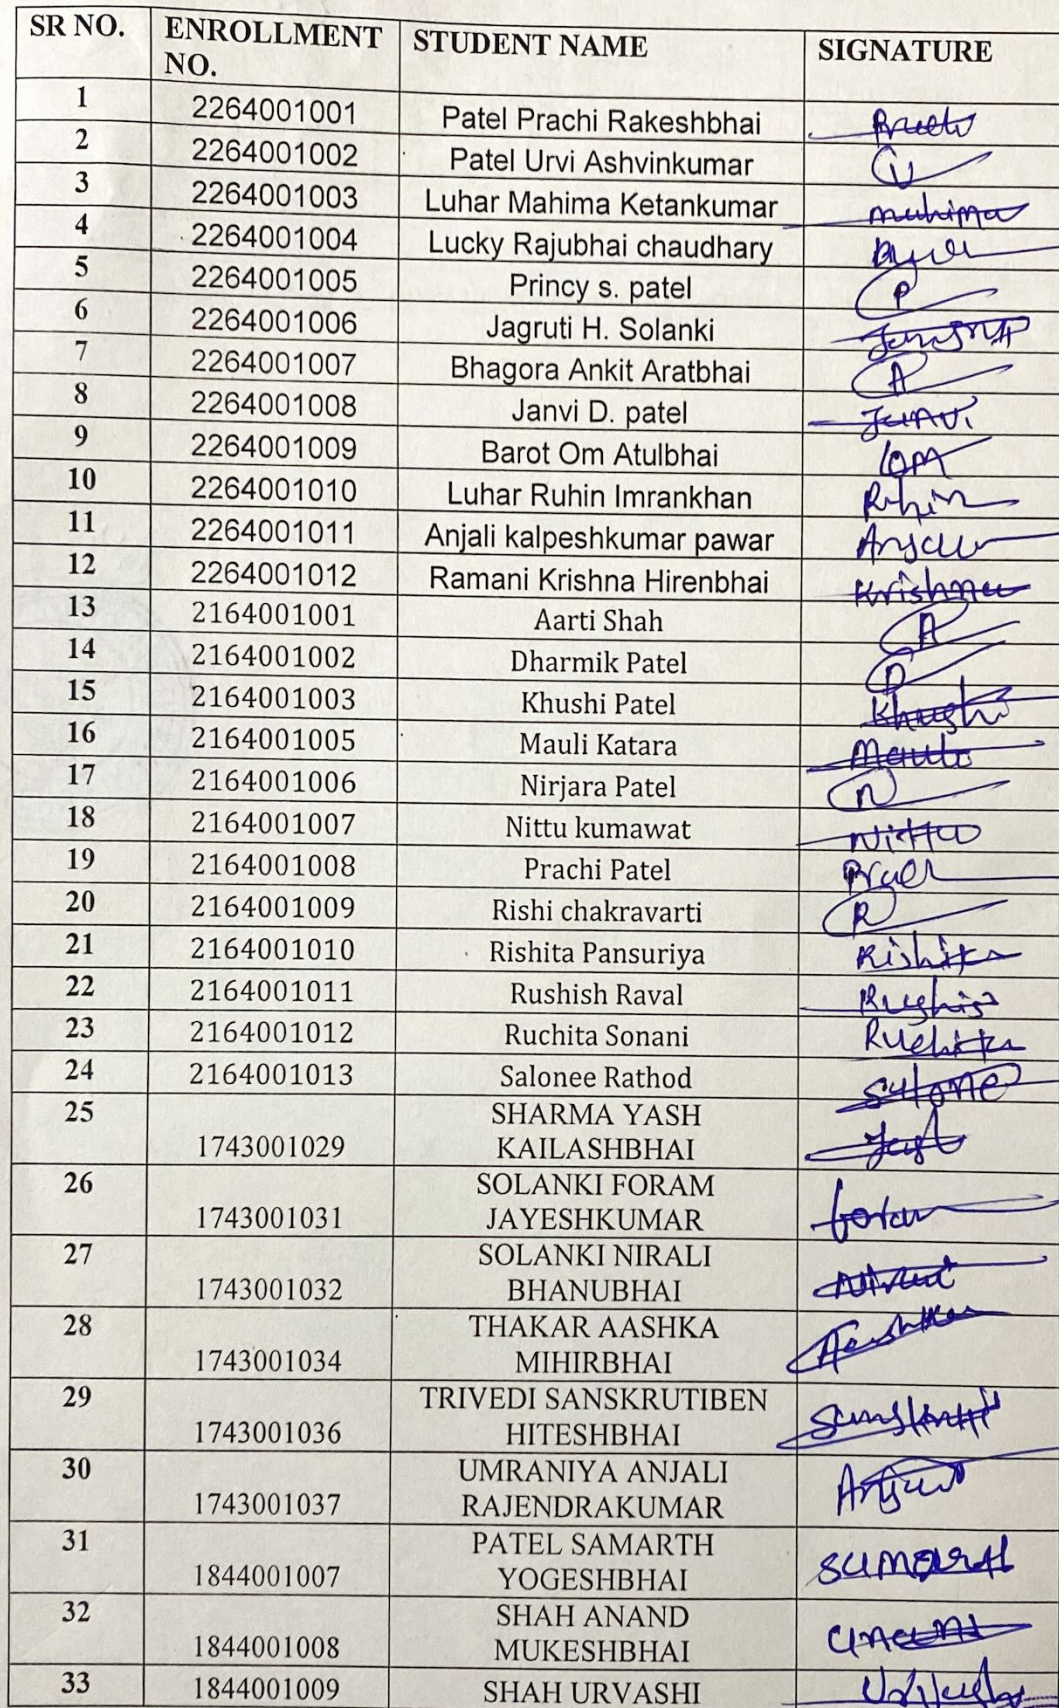 SR NO. ENROLLMENT NO. STUDENT NAME SIGNATURE
1 2264001001 Patel Prachi Rakeshbhai
2 2264001002 Patel Urvi Ashvinkumar
3 2264001003 Luhar Mahima Ketankumar mahima
4 2264001004 Lucky Rajubhai chaudhary
5 2264001005 Princy s. patel P
6 2264001006 Jagruti H. Solanki
7 2264001007 Bhagora Ankit Aratbhai A
8 2264001008 Janvi D. patel Janvi
9 2264001009 Barot Om Atulbhai om
10 2264001010 Luhar Ruhin Imrankhan Ruhin
11 2264001011 Anjali kalpeshkumar pawar
12 2264001012 Ramani Krishna Hirenbhai Krishna
13 2164001001 Aarti Shah A
14 2164001002 Dharmik Patel D
15 2164001003 Khushi Patel Khushi
16 2164001005 Mauli Katara Mauli
17 2164001006 Nirjara Patel N
18 2164001007 Nittu kumawat Nittu
19 2164001008 Prachi Patel
20 2164001009 Rishi chakravarti R
21 2164001010 Rishita Pansuriya Rishita
22 2164001011 Rushish Raval
23 2164001012 Ruchita Sonani Ruchita
24 2164001013 Salonee Rathod
25 SHARMA YASH
1743001029 KAILASHBHAI
26 SOLANKI FORAM
1743001031 JAYESHKUMAR
27 SOLANKI NIRALI
1743001032 BHANUBHAI
28 THAKAR AASHKA
1743001034 MIHIRBHAI
29 TRIVEDI SANSKRUTIBEN
1743001036 HITESHBHAI
30 UMRANIYA ANJALI
1743001037 RAJENDRAKUMAR
31 PATEL SAMARTH
1844001007 YOGESHBHAI
32 SHAH ANAND
1844001008 MUKESHBHAI
33 1844001009 SHAH URVASHI